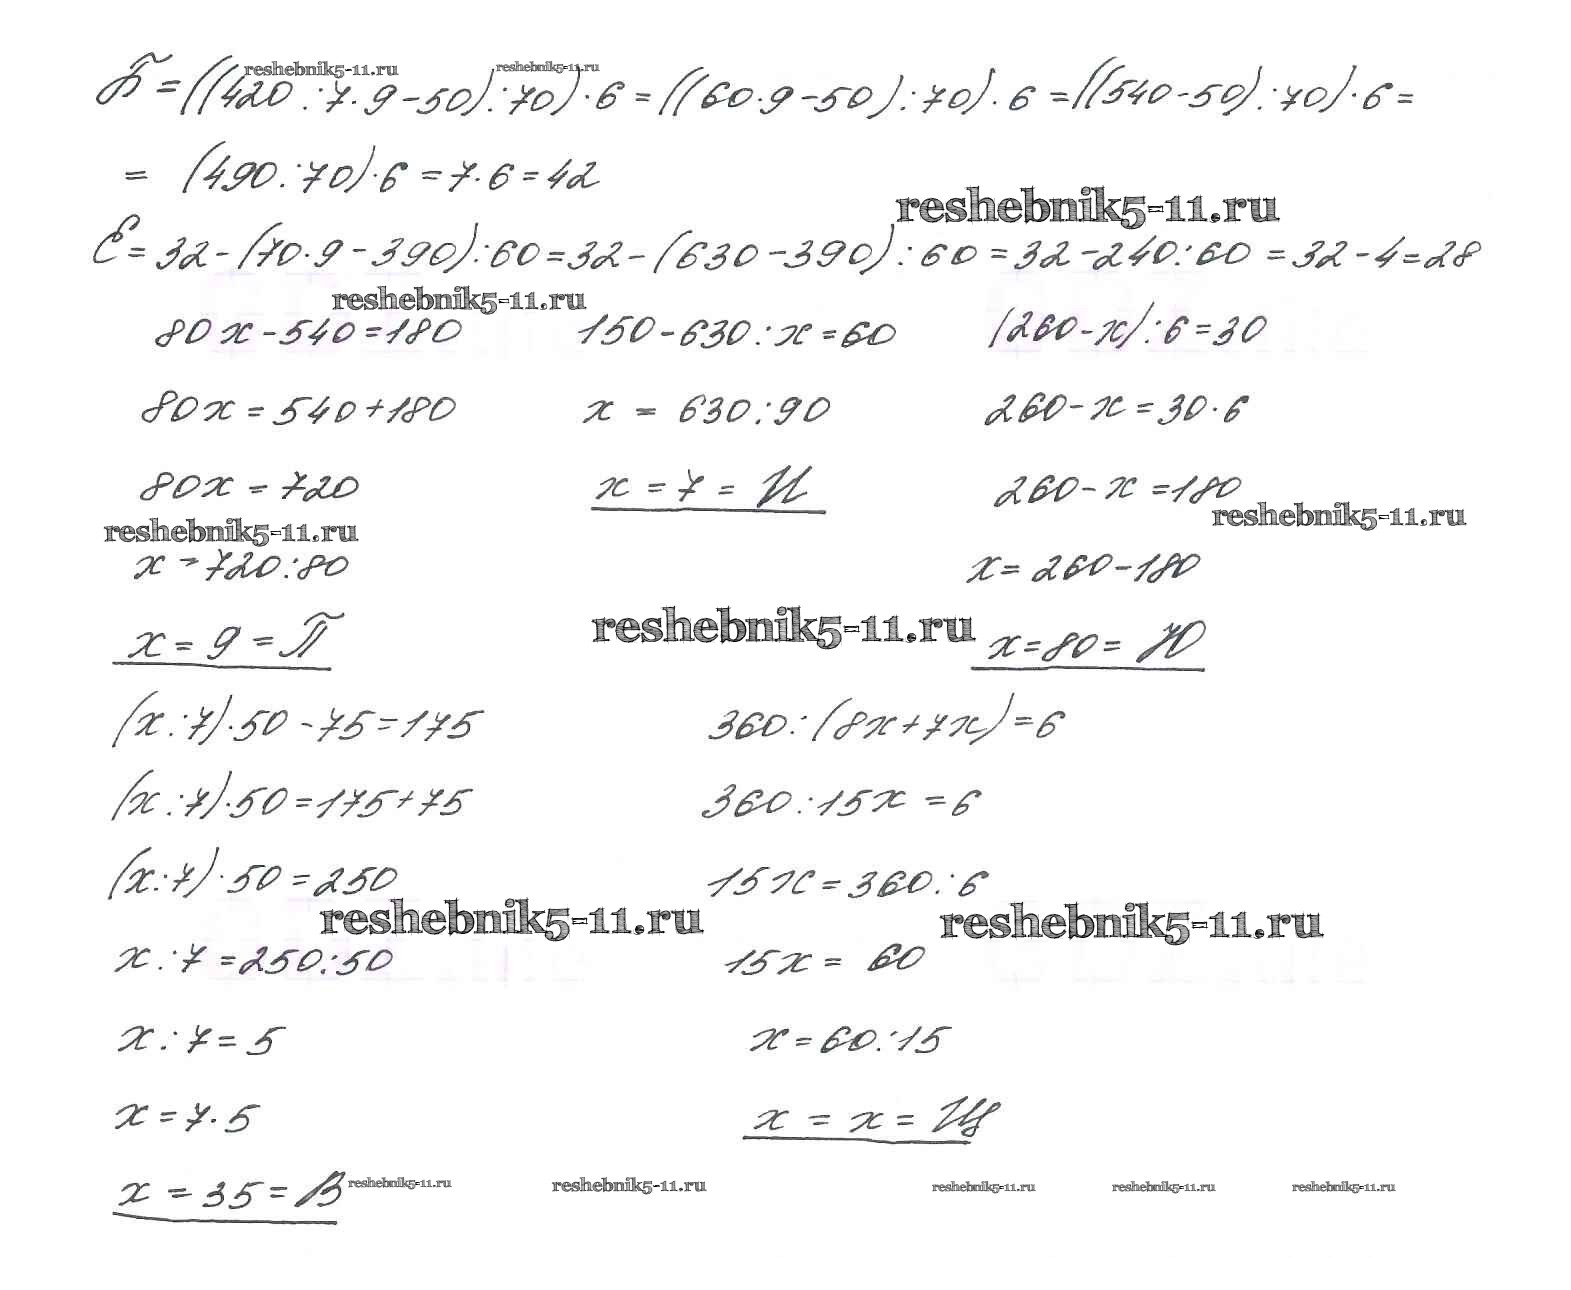 reshebnik5-11.ru reshebnik5-11.ru
Б = ((420 : 7 · 9 - 50) : 70) · 6 = ((60 · 9 - 50) : 70) · 6 = ((540 - 50) : 70) · 6 =
= (490 : 70) · 6 = 7 · 6 = 42
reshebnik5-11.ru
Ё = 32 - (70 · 9 - 390) : 60 = 32 - (630 - 390) : 60 = 32 - 240 : 60 = 32 - 4 = 28
reshebnik5-11.ru
80x - 540 = 180
80x = 540 + 180
80x = 720
reshebnik5-11.ru
x = 720 : 80
x = 9 = П
150 - 630 : x = 60
x = 630 : 90
x = 7 = И
reshebnik5-11.ru
(260 - x) : 6 = 30
260 - x = 30 · 6
260 - x = 180
reshebnik5-11.ru
x = 260 - 180
x = 80 = Ю
(x : 7) · 50 - 75 = 175
(x : 7) · 50 = 175 + 75
(x : 7) · 50 = 250
reshebnik5-11.ru
x : 7 = 250 : 50
x : 7 = 5
x = 7 · 5
x = 35 = В
360 : (8x + 7x) = 6
360 : 15x = 6
15x = 360 : 6
reshebnik5-11.ru
15x = 60
x = 60 : 15
x = x = Щ
reshebnik5-11.ru reshebnik5-11.ru reshebnik5-11.ru reshebnik5-11.ru reshebnik5-11.ru